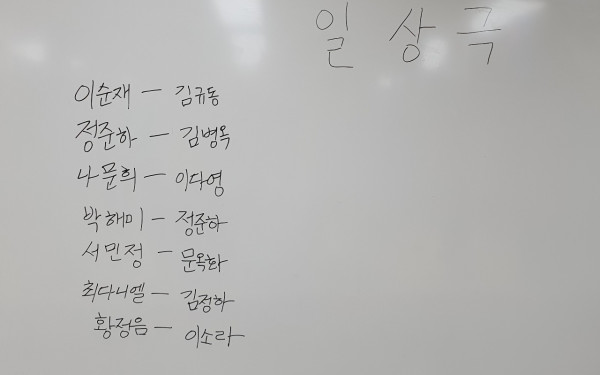 일상극
이순재 - 김규동
정준하 - 김병옥
나문희 - 이다영
박해미 - 정준하
서민정 - 문옥화
최다니엘 - 김정하
황정음 - 이소라